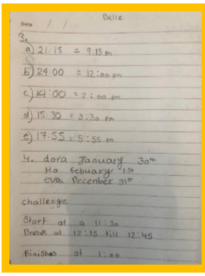 Date / /
3.
a) 21:15 = 9.15 pm
b) 24:00 = 12:00 pm
c) 14:00 = 2:00 pm
d) 15:30 = 3:30 pm
e) 17:55 = 5:55 pm
4. dora January 30th
Mo February 1st
Eva December 31st
challenge
Start at a 11:30
Break at 12:15 till 12:45
Finishes at 1:00